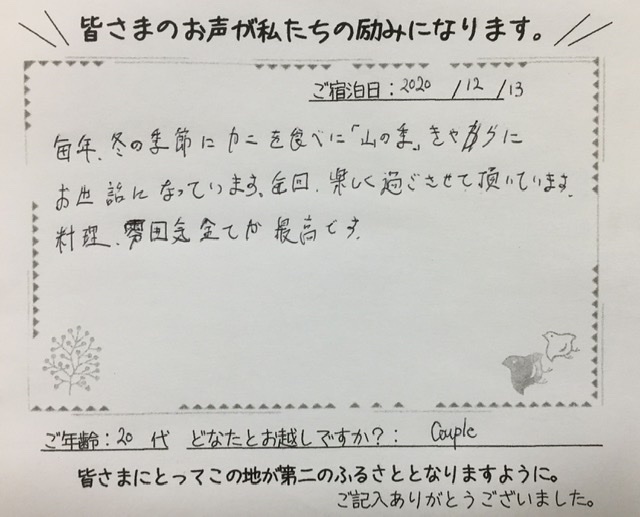 皆さまのお声が私たちの励みになります。
ご宿泊日：2020/12/13
毎年、冬の季節にカニを食べに「山の季」
お世話になっています。毎回、楽しく過ごさせて頂いています。
料理、雰囲気全てが最高です。
ご年齢：20代 どなたとお越しですか？：Couple
皆さまにとってこの地が第二のふるさととなりますように。
ご記入ありがとうございました。